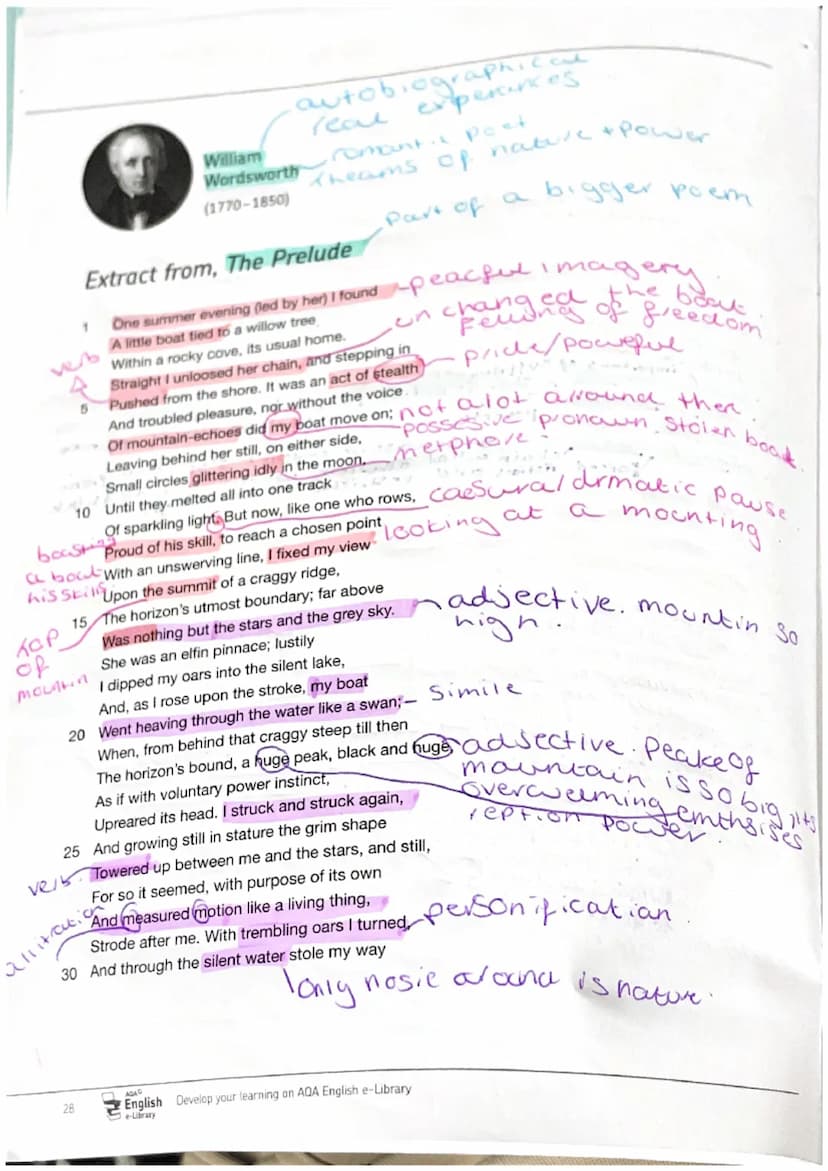 autobiographical
real experances
romantic poet
theams of nature + power
William
Wordsworth
(1770–1850)
part of a bigger poem
Extract from, The Prelude
1 One summer evening (led by her) I found
-peacful imagery
A little boat tied to a willow tree
un changed the boat.
Within a rocky cove, its usual home.
felling of freedom
verb
Straight I unloosed her chain, and stepping in
pride/powerful
5 Pushed from the shore. It was an act of stealth
And troubled pleasure, nor without the voice
not a lot around then
Of mountain-echoes did my boat move on;
possesive pronown. stolen boat
Leaving behind her still, on either side,
metphore -
Small circles glittering idly in the moon,
10 Until they melted all into one track
caesura/drmatic pause
Of sparkling light. But now, like one who rows,
boasting
a bout
his skills
Proud of his skill, to reach a chosen point
looking at a mounting
With an unswerving line, I fixed my view
Upon the summit of a craggy ridge,
15 The horizon's utmost boundary; far above
top
of
mountin
Was nothing but the stars and the grey sky.
adjective. mountin so
high.
She was an elfin pinnace; lustily
I dipped my oars into the silent lake,
And, as I rose upon the stroke, my boat
20 Went heaving through the water like a swan;
- simile
When, from behind that craggy steep till then
The horizon's bound, a huge peak, black and huge,
adjective. Peake of
mountain is so big its
overweeming emthsises
reption power.
As if with voluntary power instinct,
Upreared its head. I struck and struck again,
25 And growing still in stature the grim shape
verb.
Towered up between me and the stars, and still,
For so it seemed, with purpose of its own
allitration
And measured motion like a living thing,
Strode after me. With trembling oars I turned,
personification
30 And through the silent water stole my way
only nosie around is nature.
28
AQA
English
e-Library
Develop your learning on AQA English e-Library